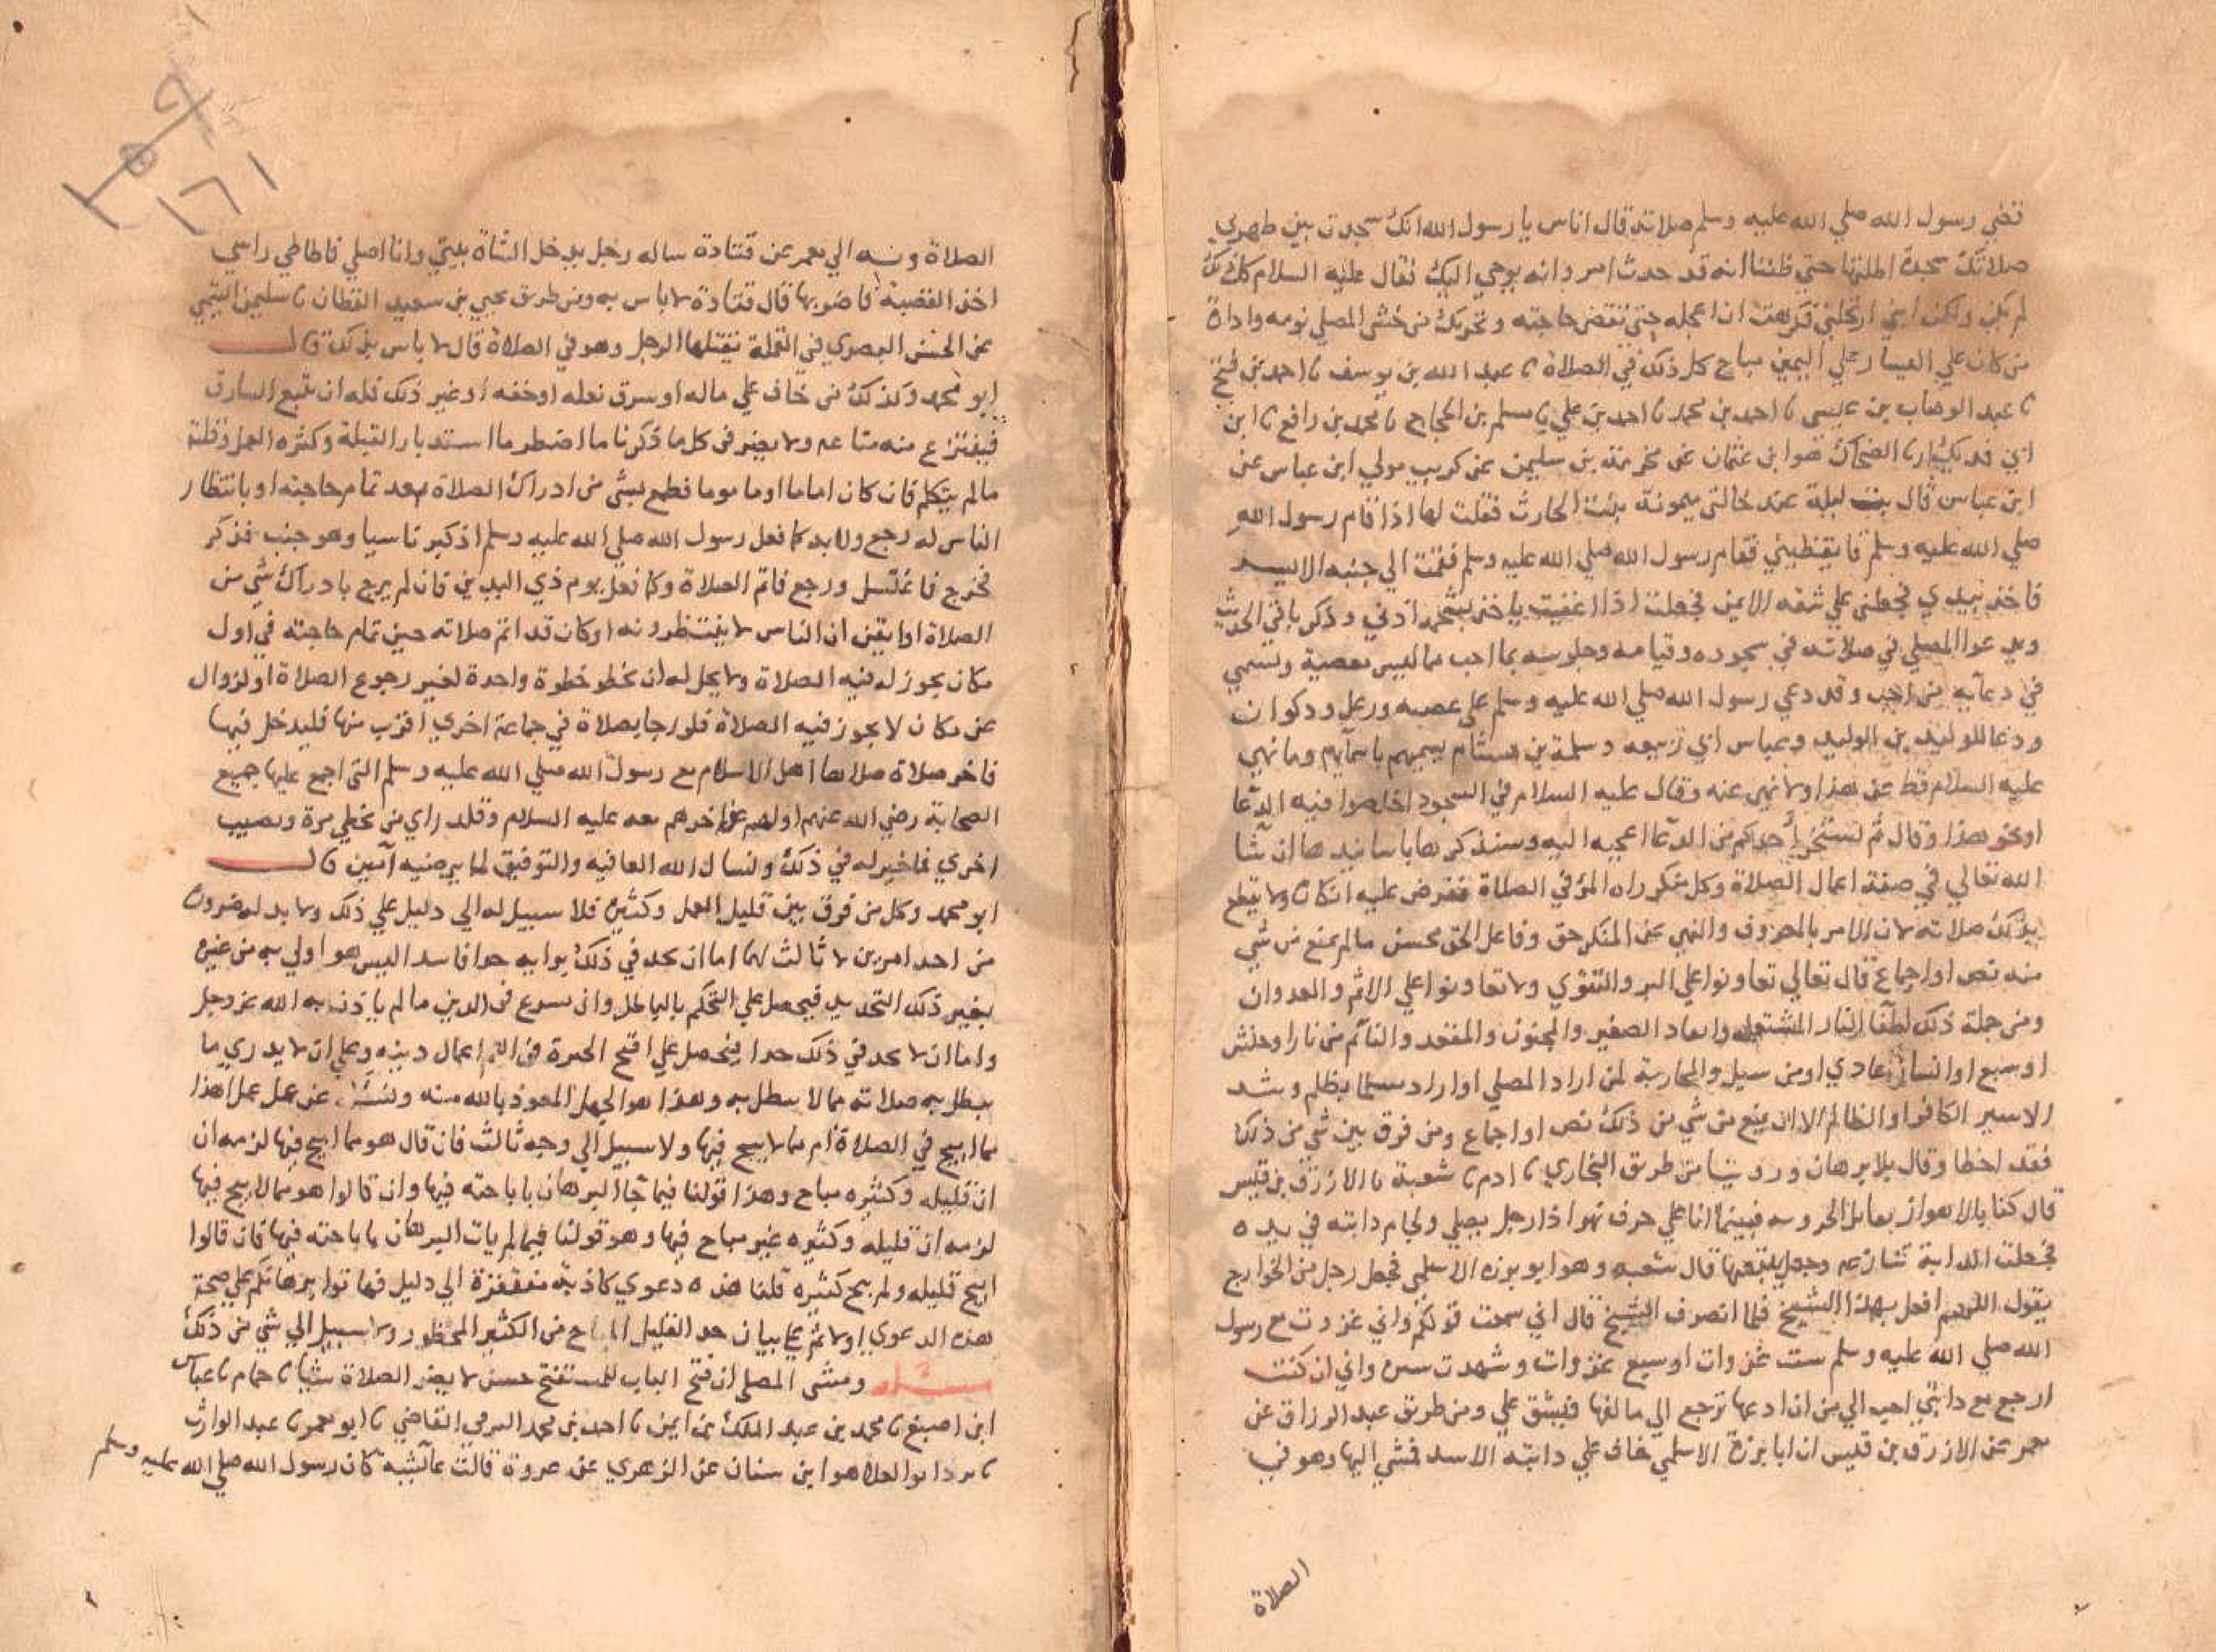 قضي رسول الله صلي الله عليه وسلم صلاته قال اناس يا رسول الله انك سجدت بين ظهري
صلاتك سجدة اطلتها حتي ظننا انه قد حدث امر وانه يوحي اليك فقال عليه السلام كل ذلك
لم يكن ولكن ابني ارتحلني فكرهت ان اعجله حتي يقضي حاجته وتحريك من خشي المصلي نومه وادارة
من كان علي اليسار علي اليمين مباح كل ذلك في الصلاة نا عبد الله بن يوسف نا احمد بن فتح
نا عبد الوهاب بن عيسي نا احمد بن محمد نا احمد بن علي نا مسلم بن الحجاج نا محمد بن رافع نا ابن
ابي فديك انا الضحاك هو ابن عثمان عن مخرمة بن سليمن عن كريب مولي ابن عباس عن
ابن عباس قال بت ليلة عند خالتي ميمونة بنت الحارث فقلت لها اذا قام رسول الله
صلي الله عليه وسلم فايقظيني فقام رسول الله صلي الله عليه وسلم فقمت الي جنبه الايسر
فاخذ بيدي فجعلني علي شقه الايمن فجعلت اذا اغفيت ياخذ بشحمة اذني وذكر باقي الحديث
ويدعوا المصلي في صلاته في سجوده وقيامه وجلوسه بما احب مما ليس معصية ويسمي
في دعآيه من احب وقد دعي رسول الله صلي الله عليه وسلم علي عصيه ورعل وذكوان
ودعا للوليد بن الوليد وعياس ابي ربيعه وسلمة بن هشام يسميهم باسمآيهم وما نهي
عليه السلام قط عن هذا ولا نهي عنه وقال عليه السلام في السجود اخلصوا فيه الدعا
او نحو هذا وقال ثم ليتخير احدكم من الدعا اعجبه اليه وسنذكرها باسانيدها ان شا
الله تعالي في صفة اعمال الصلاة وكل منكر راه المرؤ في الصلاة ففرض عليه انكاره ولا يقطع
بذلك صلاته لان الامر بالمعروف والنهي عن المنكر حق وفاعل الحق محسن ما لم يمنع من شي
منه نص او اجماع قال تعالي تعاونوا علي البر والتقوي ولا تعاونوا علي الاثم والعدوان
ومن جملة ذلك اطفا النار المشتعله وابعاد الصغير والمجنون والمقعد والنائم من نار او حنش
او سبع او انسان عادي او من سيل والمحاربة لمن اراد المصلي او اراد مسلما بظلم وشد
الاسير الكافر او الظالم الا ان يمنع من شي من ذلك نص او اجماع ومن فرق بين شي من ذلك
فقد اخطا وقال بلا برهان وروينا من طريق البخاري نا ادم نا شعبة نا الازرق بن قيس
قال كنا بالاهواز نقاتل الحروريه فبينما انا علي حرف نهر اذا رجل يصلي ولجام دابته في يده
فجعلت الدابة تنازعه وجعل يتبعها قال شعبه وهو ابو برزه الاسلمي فجعل رجل من الخوارج
يقول اللهم افعل بهذا الشيخ فلما انصرف الشيخ قال اني سمعت قولكم واني غزوت مع رسول
الله صلي الله عليه وسلم ست غزوات او سبع غزوات وشهدت تيسره واني ان كنت
ارجع مع دابتي احب الي من ان ادعها ترجع الي مالفها فيشق علي ومن طريق عبد الرزاق عن
معمر عن الازرق بن قيس ان ابا برزة الاسلمي خاف علي دابته الاسد فمشي اليها وهو في
الصلاة
الصلاة وبه الي معمر عن قتادة ساله رجل يدخل الشاة بيتي وانا اصلي فاطاطي راسي
اخذ القصبة فاضربها قال قتادة لا باس به ومن طريق يحيي بن سعيد القطان نا سليمن التيمي
عن الحسن البصري في القملة يقتلها الرجل وهو في الصلاة قال لا باس بذلك قال
ابو محمد وكذلك من خاف علي ماله او سرق نعله او خفه او غير ذلك فله ان يتبع السارق
فينتزع منه متاعه ولا يضر في كل ما ذكرنا ما اضطر ما استدبار القبلة وكثره العمل وقلته
ما لم يتكلم فان كان اماما او ماموما فطمع بشي من ادراك الصلاة بعد تمام حاجته او بانتظار
الناس له رجع ولابد كما فعل رسول الله صلي الله عليه وسلم اذ كبر ناسيا وهو جنب فذكر
فخرج فاغتسل ورجع فاتم الصلاة وكما فعل يوم ذي اليدين فان لم يرج بادراك شي من
الصلاة او ايقن ان الناس لا ينتظرونه او كان قد اتم صلاته حين تمام حاجته في اول
مكان يجوز له فيه الصلاة ولا يحل له ان يخطو خطوة واحدة لغير رجوع الصلاة او لزوال
عن مكان لا يجوز فيه الصلاة فلو رجا بصلاة في جماعة اخري اقرب منها فليدخل فيها
فاخر صلاة صلاها اهل الاسلام مع رسول الله صلي الله عليه وسلم التي اجمع عليها جميع
الصحابة رضي الله عنهم اولهم عن اخرهم معه عليه السلام وقلد راي من يخطي مرة ويصيب
اخري فما خير له في ذلك ونسال الله العافيه والتوفيق لما يرضيه آمين قال
ابو محمد وكل من فرق بين قليل العمل وكثيره فلا سبيل له الي دليل علي ذلك ولا بد له ضرورة
من احد امرين لا ثالث لهما اما ان يحد في ذلك برايه حدا فاسدا ليس هو اولي به من غيره
بغير ذلك التحديد فيحصل علي التحكم بالباطل وان يسرع في الدين ما لم ياذن به الله عز وجل
واما ان لا يحد في ذلك حدا فيحصل علي اقبح الحيرة في اهم اعمال دينه وعلي ان لا يدري ما
يبطل به صلاته مما لا يبطل به وهذا هو الجهل المعوذ بالله منه ونسئله عن عمل عمل اهذا
مما ابيح في الصلاة ام مما لا يبيح فيها ولا سبيل الي وجه ثالث فان قال هو مما ابيح فيها لزمه ان
ان قليله وكثيره مباح وهذا قولنا فيما جا البرهان باباحته فيها وان قالوا هو مما لا ابيح فيها
لزمه ان قليله وكثيره غير مباح فيها وهو قولنا فيما لم يات البرهان باباحته فيها فان قالوا
ابيح قليله ولم يبح كثيره قلنا هذه دعوي كاذبة مفتقرة الي دليل فهاتوا برهانكم علي صحة
هذه الدعوي اولا ثم علي بيان حد القليل المباح من الكثير المحظور ولا سبيل الي شي من ذلك
مسئله ومشي المصلي ان فتح الباب للمستفتح حسن لا يضر الصلاة شيئا نا حمام نا عباس
ابن اصبغ نا محمد بن عبد الملك بن ايمن نا احمد بن محمد البرتي القاضي نا ابو معمر نا عبد الوارث
نا برد ابو العلا هو ابن سنان عن الزهري عن عروة قالت عآئشة كان رسول الله صلي الله عليه وسلم